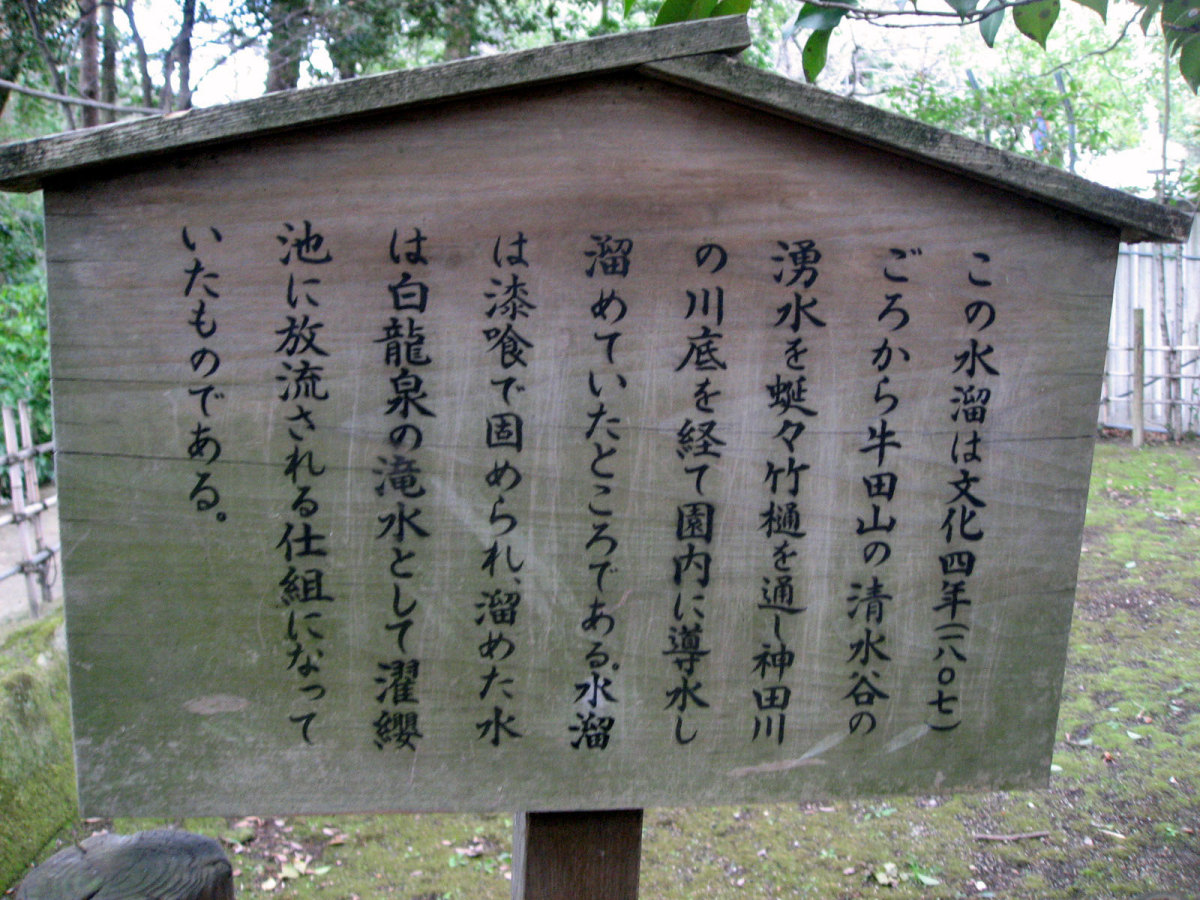 この水溜は文化四年(一八〇七)
ごろから牛田山の清水谷の
湧水を蜒々竹樋を通し神田川
の川底を経て園内に導水し
溜めていたところである。水溜
は漆喰で固められ、溜めた水
は白龍泉の滝水として濯纓
池に放流される仕組になって
いたものである。